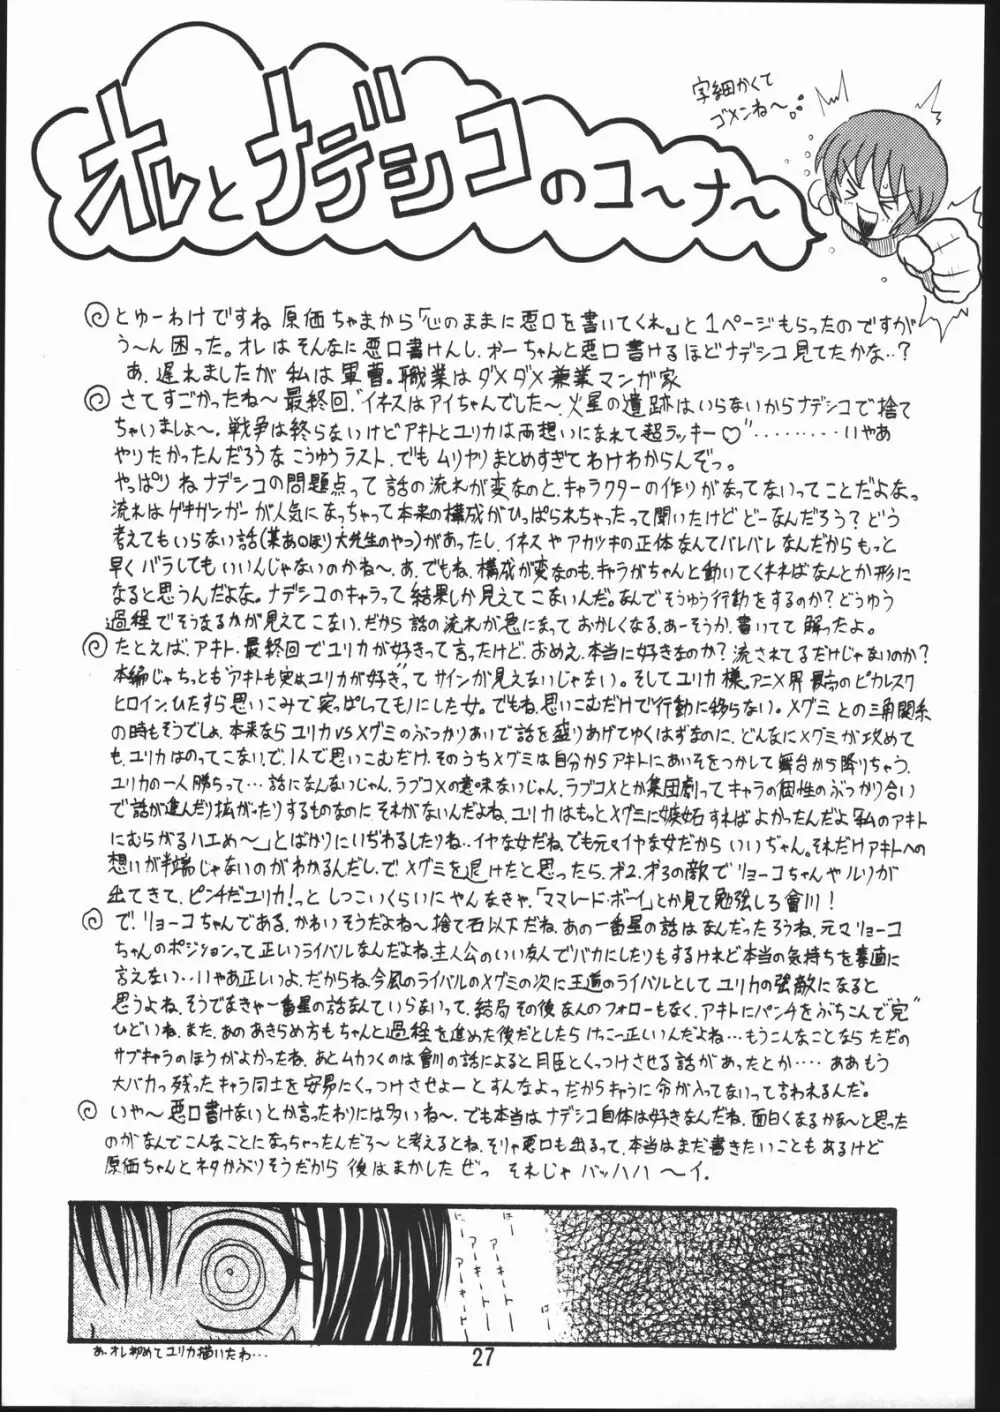 オレとナデシコのコ〜ナ〜
字細かくて
ゴメンね〜
とゆーわけですね 原価ちゃまから「心のままに悪口を書いてくれ。」と1ページもらったのですが
う〜ん困った。オレはそんなに悪口書けんし、かーちゃんと悪口書けるほどナデシコ見てたかな‥?
あ、遅れましたが私は軍曹。職業はダメダメ兼業マンガ家
さてすごかったね〜最終回、"イネスはアイちゃんでした〜火星の遺跡はいらないからナデシコで捨て
ちゃいましょ〜、戦争は終らないけどアキトとユリカは両想いになれて超ラッキー♡"‥‥‥‥‥いやあ
やりたかったんだろうなこうゆうラスト、でもムリヤリまとめすぎてわけわからんぞっ。
やっぱりねナデシコの問題点って話の流れが変なのと、キャラクターの作りがなってないってことだよなっ
流れはゲキガンガーが人気になっちゃって本来の構成がひっぱられちゃったって聞いたけどどーなんだろう?どう
考えてもいらない話(某あ○ほり大先生のやつ)があったし、イネスやアカツキの正体なんてバレバレなんだからもっと
早くバラしてもいいんじゃないのかね〜、あ、でもね、構成が変なのも、キャラがちゃんと動いてくれればなんとか形に
なると思うんだよな。ナデシコのキャラって結果しか見えてこないんだ。なんでそうゆう行動をするのか?どうゆう
過程でそうなるかが見えてこない、だから話の流れが急になっておかしくなる、あーそうか、書いてて解ったよ。
たとえば、アキト、最終回でユリカが好きって言ったけど、おめえ、本当に好きなのか?流されてるだけじゃないのか?
本編じゃちっとも"アキトも実はユリカが好き"ってサインが見えないじゃない。そしてユリカ様。アニメ界最高のピカレスク
ヒロイン、ひたすら思いこみで突っぱしってモノにした女。でもね、思いこむだけで行動に移らない。メグミとの三角関係
の時もそうでしょ、本来ならユリカVSメグミのぶっかりあいで話を盛りあげてゆくはずなのに、どんなにメグミが攻めて
も、ユリカはのってこないで、1人で思いこむだけ、そのうちメグミは自分からアキトにあいそをつかして舞台から降りちゃう、
ユリカの一人勝ちって…話になんないじゃん、ラブコメの意味ないじゃん、ラブコメとか集団劇ってキャラの個性のぶっかり合い
で話が進んだり拡がったりするものなのに それがないんだよね、ユリカはもっとメグミに嫉妬すればよかったんだよ「私のアキト
にむらがるハエめ〜」とばかりにいぢわるしたりね‥イヤな女だね、でも元々イヤな女だからいいぢゃん。それだけアキトへの
想いが半端じゃないのがわかるんだし、で、メグミを退けたと思ったら、才2、才3の敵でリョーコちゃんやルリが
出てきて、ピンチだユリカ!っと しつこいくらいにやんなきゃ、「ママレード・ボーイ」とか見て勉強しろ會川!
で、リョーコちゃんである、かわいそうだよね〜捨て石以下だね、あの一番星の話はなんだったろうね、元々リョーコ
ちゃんのポジションって正しいライバルなんだよね、主人公のいい友人でバカにしたりもするけれど本当の気持ちを素直に
言えない‥いやあ正しいよ、だからね、今風のライバルのメグミの次に王道のライバルとしてユリカの強敵になると
思うよね、そうでなきゃ一番星の話なんていらないって、結局その後なんのフォローもなく、アキトにパンチをぶちこんで"完"
ひどいね、また、あのあきらめ方もちゃんと過程を進めた後だとしたらけっこー正しいんだよね…もうこんなことならただの
サブキャラのほうがよかったね、あとムカつくのは會川の話によると月臣とくっつけさせる話があったとか‥‥ああもう
大バカっ残ったキャラ同士を安易にくっつけさせよーとすんなよっだからキャラに命が入ってないって言われるんだ。
いや〜悪口書けないとか言ったわりには多いね〜、でも本当はナデシコ自体は好きなんだね、面白くなるかな〜と思った
のがなんでこんなことになっちゃったんだろ〜と考えるとね、そりゃ悪口も出るって、本当はまだ書きたいこともあるけど
原価ちゃんとネタかぶりそうだから後はまかしたぜっ それじゃ バッハハ〜イ。
あ、オレ初めてユリカ描いたわ…
27